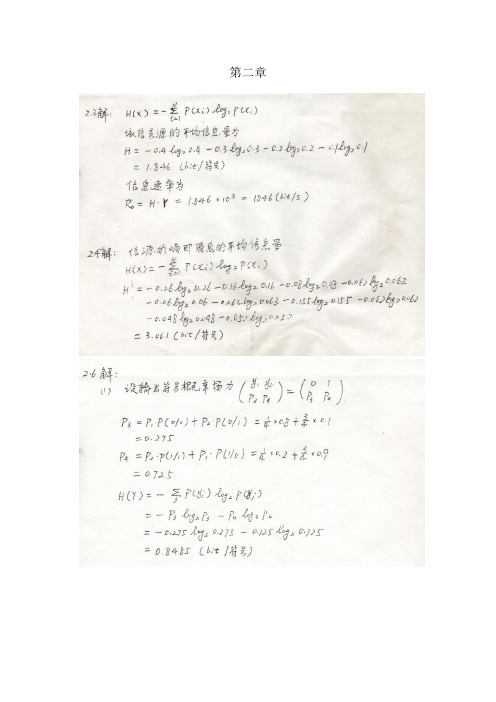 第二章
2.3解: H(X)=-∑_{i=1}^{N} P(xi) log₂ P(xi)
该信号源的平均信息量为
H = -0.4 log₂ 0.4 - 0.3 log₂ 0.3 - 0.2 log₂ 0.2 - 0.1 log₂ 0.1
= 1.846 (bit/符号)
信息速率为
= H·r = 1.846 ×10³ = 1846 (bit/s)
2.4解: 信源的熵即消息的平均信息量
H(X)=- P(xi) log₂ P(xi)
H = -0.26 log₂ 0.26 - 0.16 log₂ 0.16 - 0.08 log₂ 0.08 - 0.062 log₂ 0.062
-0.06 log₂ 0.06 - 0.063 log₂ 0.063 - 0.155 log₂ 0.155 - 0.062 log₂ 0.062
-0.048 log₂ 0.048 - 0.052 log₂ 0.052
= 3.061 (bit/符号)
2.6解:
(1) 设输出符号概率场为 = (0 1 P₃ P₄)
P₃ = P₁·P(0/0) + P₂·P(0/1) = ¼×0.8 + ¾×0.1
= 0.275
P₄ = P₂·P(1/1) + P₁·P(1/0) = ¼×0.2 + ¾×0.9
= 0.725
H(Y) = - ∑ P(yj) log₂ P(yj)
= - P₃ log₂ P₃ - P₄ log₂ P₄
= -0.275 log₂ 0.275 - 0.725 log₂ 0.725
= 0.8485 (bit/符号)